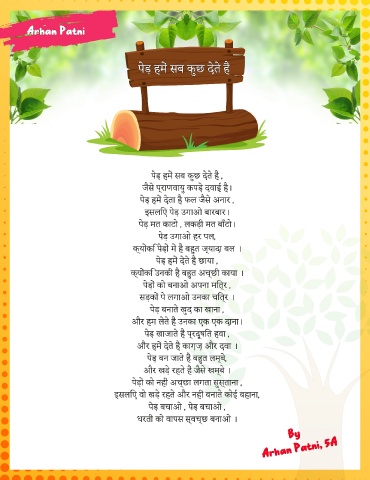 Arhan Patni
पेड़ हमें सब कुछ देते है
पेड़ हमें सब कुछ देते है ,
जैसे प्राणवायु कपड़े दवाई है।
पेड़ हमें देता है फल जैसे अनार ,
इसलिए पेड़ उगाओ बारबार।
पेड़ मत काटो , लकड़ी मत बाँटो।
पेड उगाओ हर पल,
क्योंकि पेड़ों मे है बहुत ज्यादा बल ।
पेड़ हमें देते है छाया ,
क्योंकि उनकी है बहुत अच्छी काया ।
पेड़ों को बनाओ अपना मित्र ,
सड़कों पे लगाओ उनका चित्र ।
पेड़ बनाते खुद का खाना ,
और हम लेते है उनका एक एक दाना।
पेड़ खाजाते है प्रदूषित हवा ,
और हमें देते है कागज़ और दवा ।
पेड़ बन जाते है बहुत लम्बे,
और खड़े रहते है जैसे खम्बे ।
पेड़ो को नही अच्छा लगता सुस्ताना ,
इसलिए वो खड़े रहते और नही बनाते कोई बहाना,
पेड़ बचाओ , पेड़ बचाओ ,
धरती को वापस स्वच्छ बनाओ ।
By
Arhan Patni, 5A